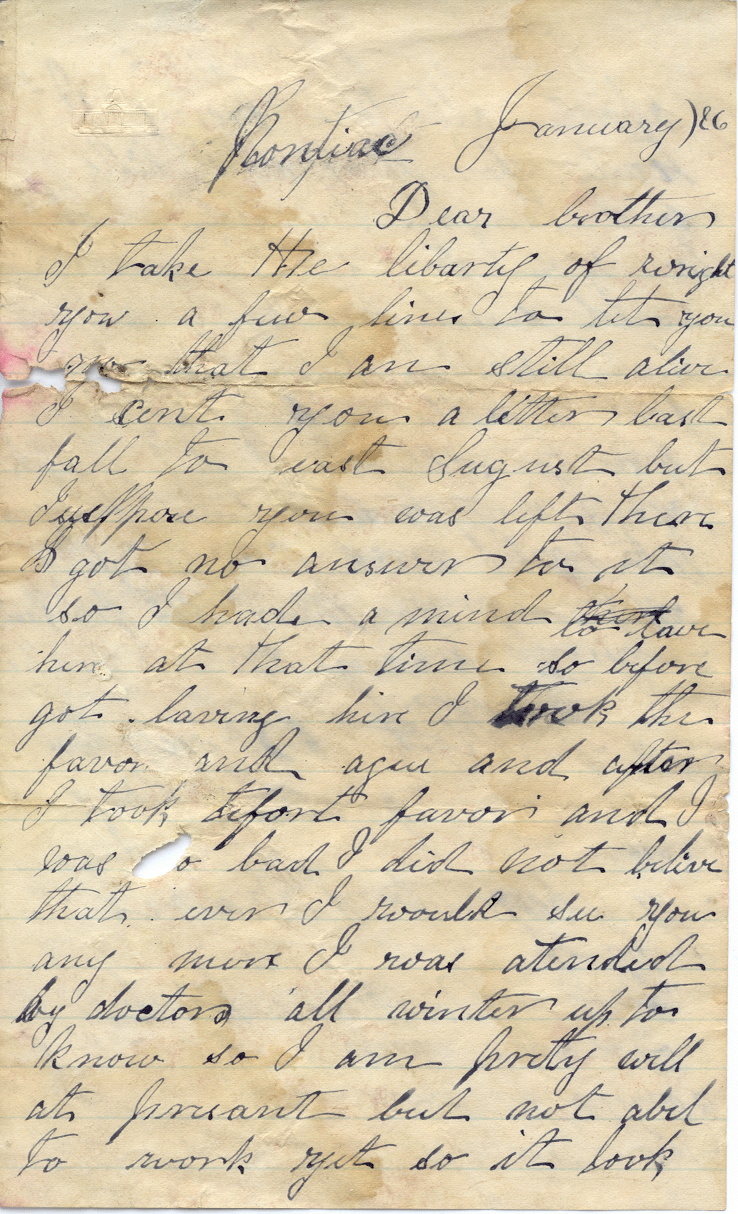 Pontiac January) 86
Dear brother
I take the libarty of wright
you a few lines to let you
now that I am still alive
I cent you a letter last
fall to east Sugust but
I suppose you was left there
I got no answer to it
so I had a mind to leave
here at that time so before
got leaving hire I took the
favor and ague and after
I took tifort favor and I
was so bad I did not belive
that ever I would see you
any more I was atended
by doctors all winter up to
know so I am prety well
at presant but not abel
to work yet so it look